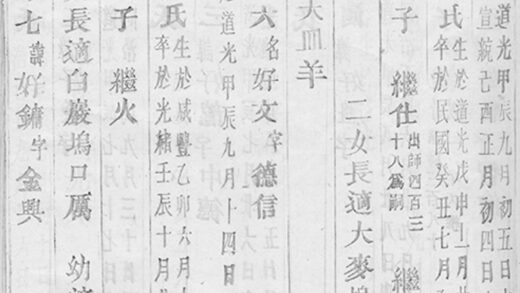 道光甲辰九月初五日
宣統己酉正月初四日
氏生於道光戊申
卒於民國癸丑七月
子 繼仕 出師四百三十八為嗣 繼
二女長適大麥塢
大皿羊
六名好文字德信
道光甲辰九月十四日
氏生於咸豐乙卯六月
卒於光緒壬辰十月
子 繼火
長適白巖塢口厲 幼適
七諱好鏞字金興